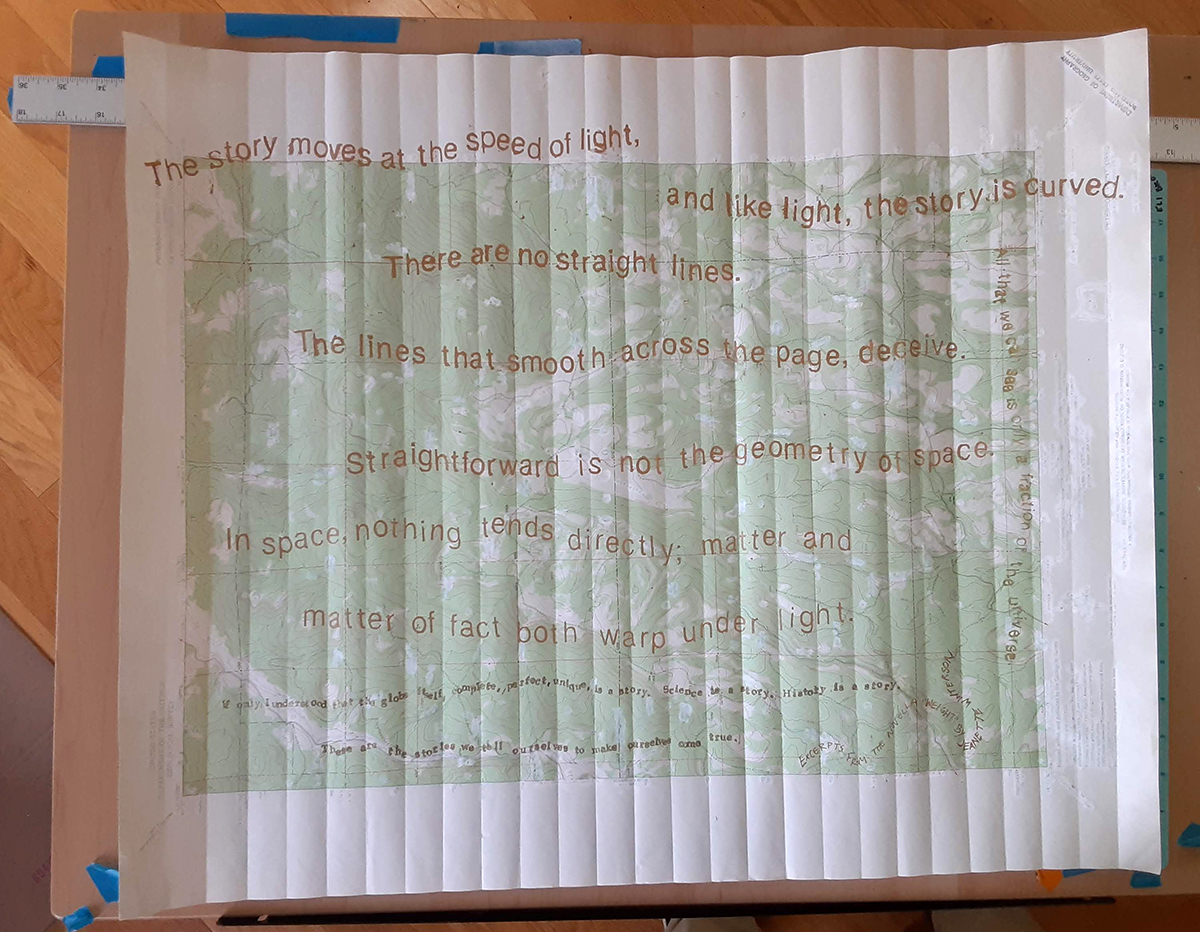 The story moves at the speed of light,
and like light, the story is curved.
There are no straight lines.
The lines that smooth across the page, deceive.
Straightforward is not the geometry of space.
In space, nothing tends directly; matter and
matter of fact both warp under light.
If only I understood that the globe itself, complete, perfect, unique, is a story. Science is a story. History is a story.
These are the stories we tell ourselves to make ourselves come true.
All that we can see is only a fraction of the universe.
EXCERPTS FROM THE NOVELLA "WEIGHT" BY JEANETTE WINTERSON
36
35
34
18
17
16